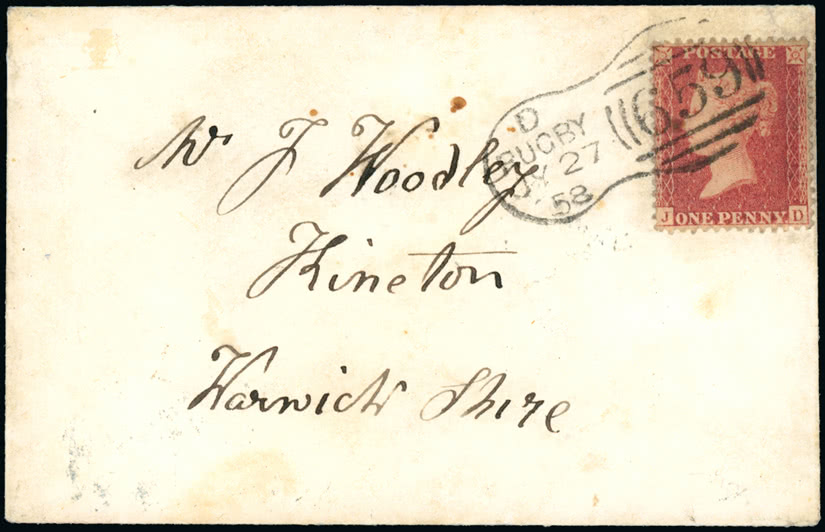 Mr J Woodley
Kineton
Warwick Shire
D
RUGBY
JY 27
58
659
POSTAGE
J ONE PENNY D